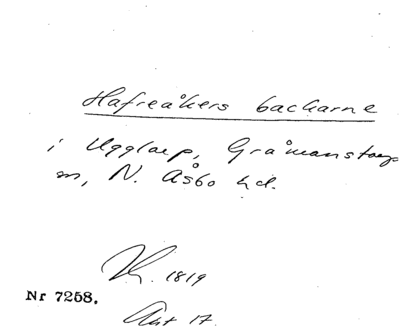 Hafreåkers backarne
i Ugglarp, Gråmanstorps
sn, N. Åsbo hd.
1819
Nr 7258.
Akt 17.